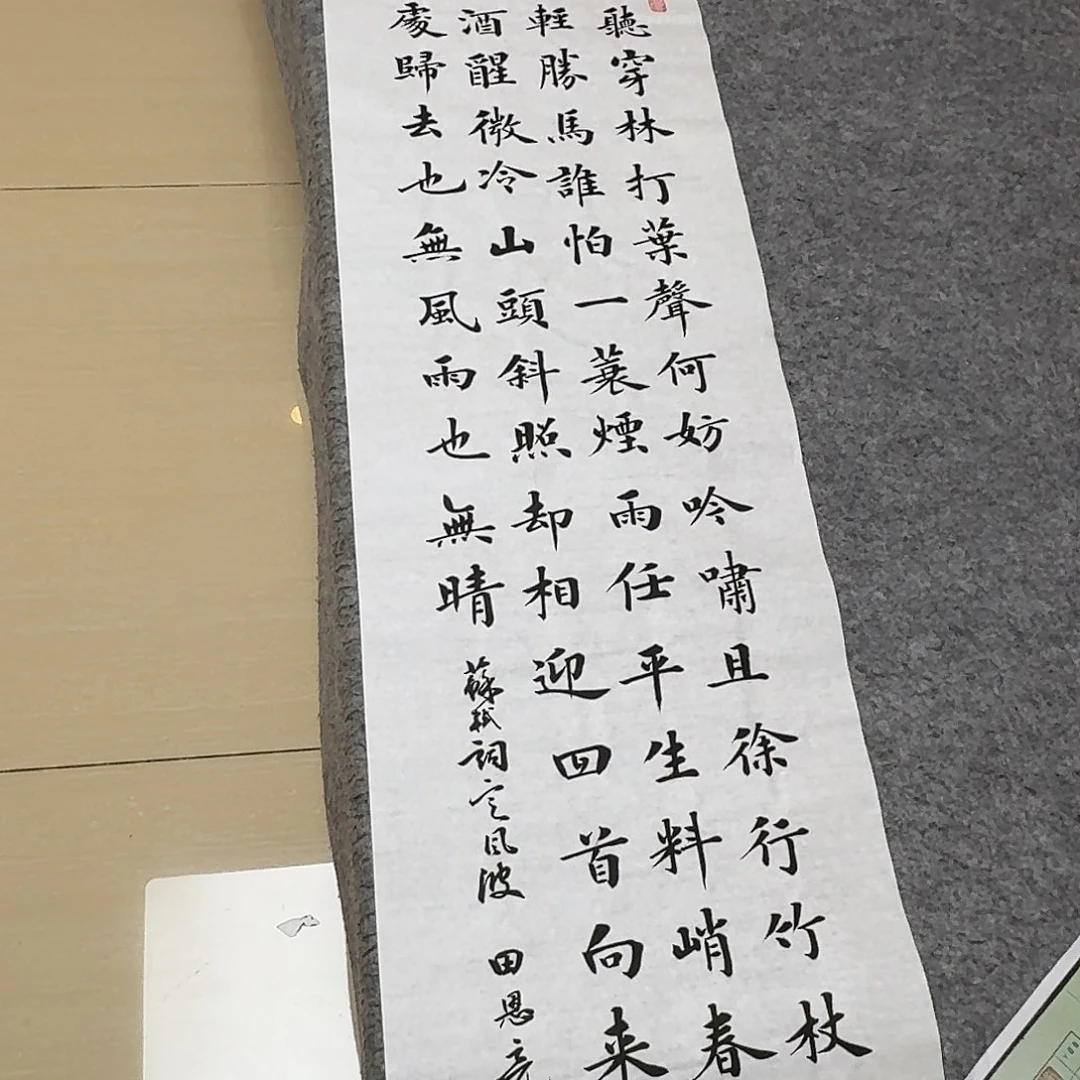 聽穿林打葉聲何妨吟嘯且徐行竹杖
輕勝馬誰怕一蓑煙雨任平生料峭春
酒醒微冷山頭斜照却相迎回首向来
處歸去也無風雨也無晴
蘇軾詞定風波 田恩